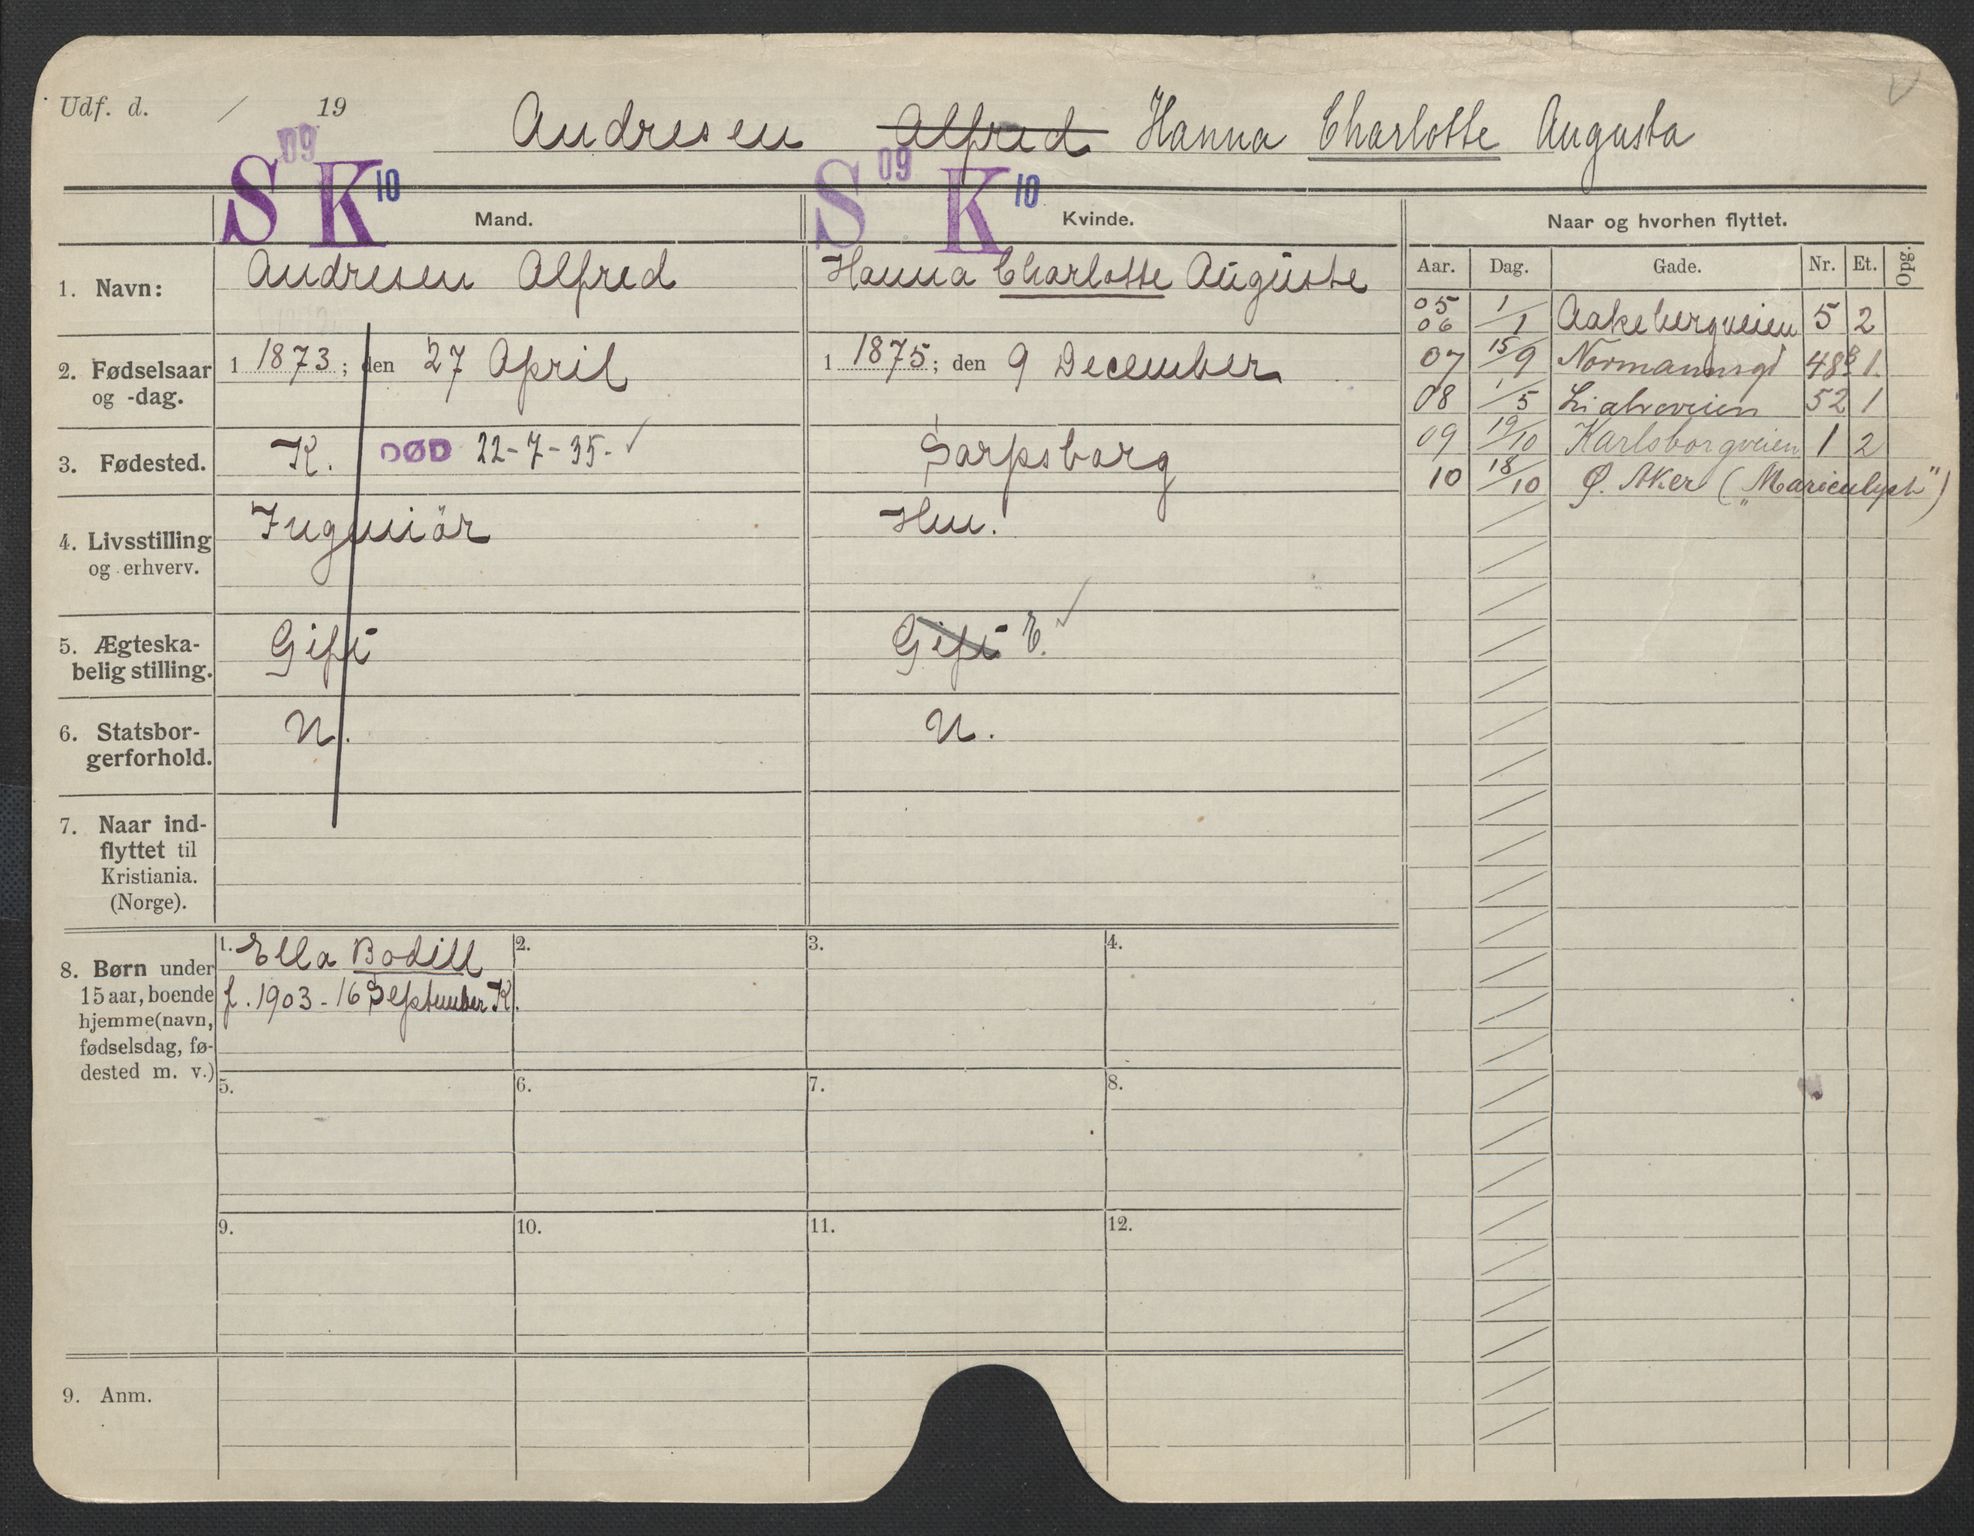 Udf. d. / 19 Andresen Alfred Hanna Charlotte Augusta
S 09 K 10 Mand. S 09 K 10 Kvinde. Naar og hvorhen flyttet.
Aar. Dag. Gade. Nr. Et. Opg.
1. Navn: Andresen Alfred Hanna Charlotte Auguste
2. Fødselsaar
og -dag.
1 1873; den 27 April
1 1875; den 9 December
3. Fødested. K. DØD 22-7-35- ✓ Sarpsborg
4. Livsstilling
og erhverv.
Ingeniör Hu.
5. Ægteska-
belig stilling.
Gift Gift E. ✓
6. Statsbor-
gerforhold.
N. N.
7. Naar ind-
flyttet til
Kristiania.
(Norge).
05
06 1/1 Aakebergveien 5 2
07 15/9 Normannsgt 48 1.
08 1/5 52 1
09 19/10 Karlsborgveien 1 2
10 18/10 Ø. Aker („Marienlyst")
8. Børn under
15 aar, boende
hjemme (navn,
fødselsdag, fø-
dested m. v.)
1. Ella Bodill
f. 1903 - 16 September K.
2.
3.
4.
5.
6.
7.
8.
9.
10.
11.
12.
9. Anm.